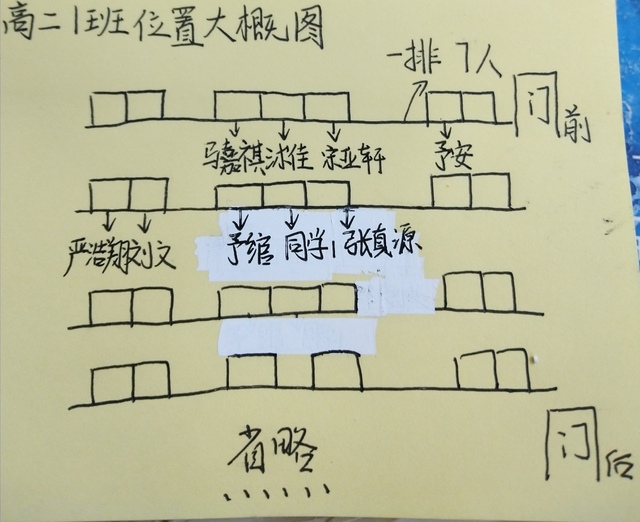 高二1班位置大概图
一排7人
门前
马嘉祺 沐佳 宋亚轩 予安
严浩翔 刘文 予绾 同学1 张真源
门后
省略
......